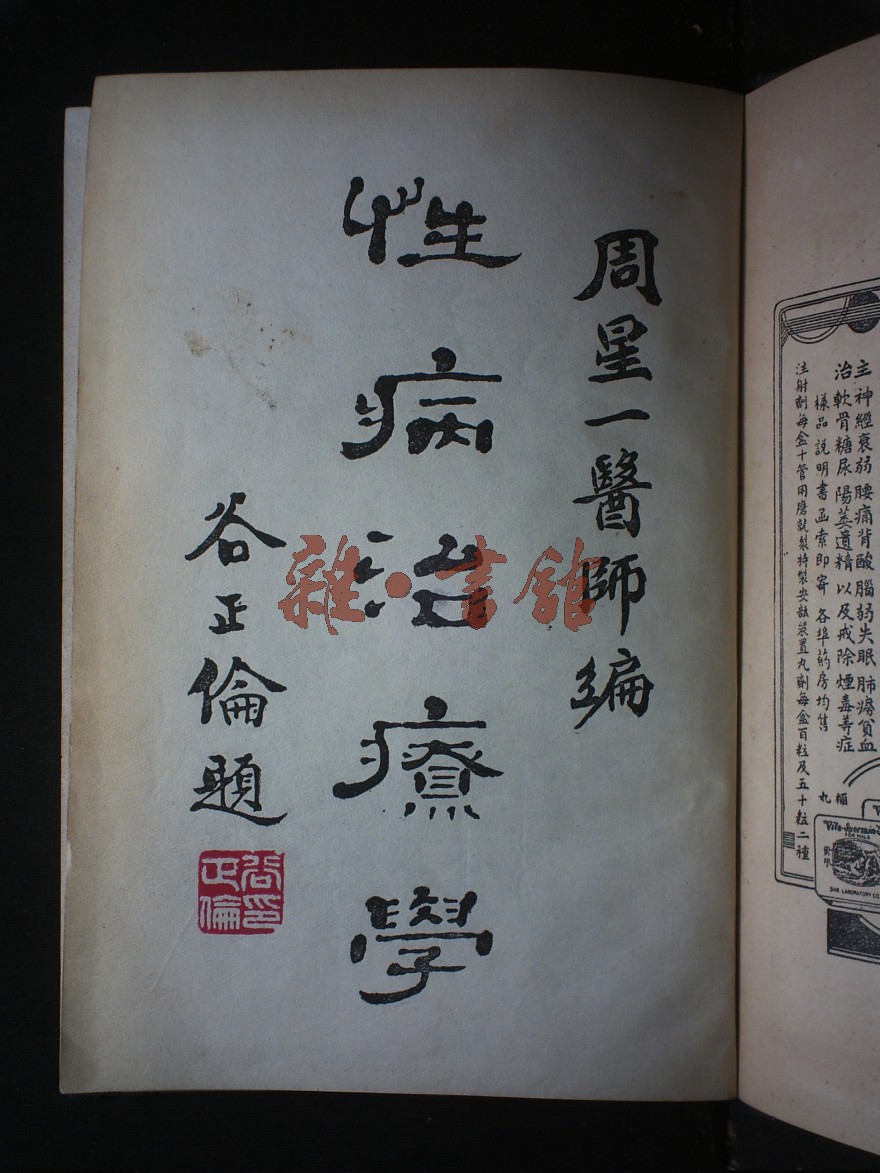 周星一醫師編
性病治療學
谷正倫題
谷正倫印
雜·書館
主神經衰弱腰痛背酸腦弱失眠肺癆貧血
治軟骨糖尿陽萎遺精以及戒除煙毒等症
樣品說明書函索即寄 各埠葯房均售
注射劑每盒十管用磨砂製特製安瓿裝置丸劑每盒百粒及五十粒二種
Vita-Spermin
FOR MALE
SINE LABORATORY CO